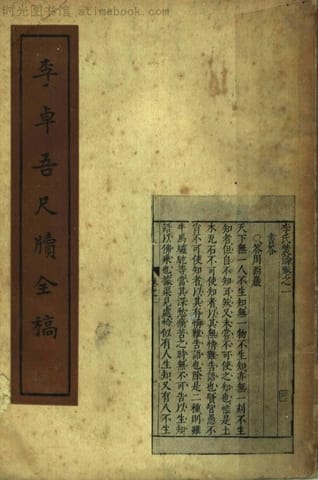 时光图书馆 - atimebook.com
李卓吾尺牘全稿
李氏焚餘卷之一
書答
○答周西巖
天下無一人不生知無一物不生知亦無一刻不生
知者但自不知耳然又未嘗不可使之知也惟是土
木瓦石不可使知者以其無情難告語也賢智愚不
肖不可使知者以其有情難告語也除是二種則雖
牛馬驢駝等當其深愁痛苦之時無不可告以生知
語以佛乘也據渠見處恰似有人生知又有人不生